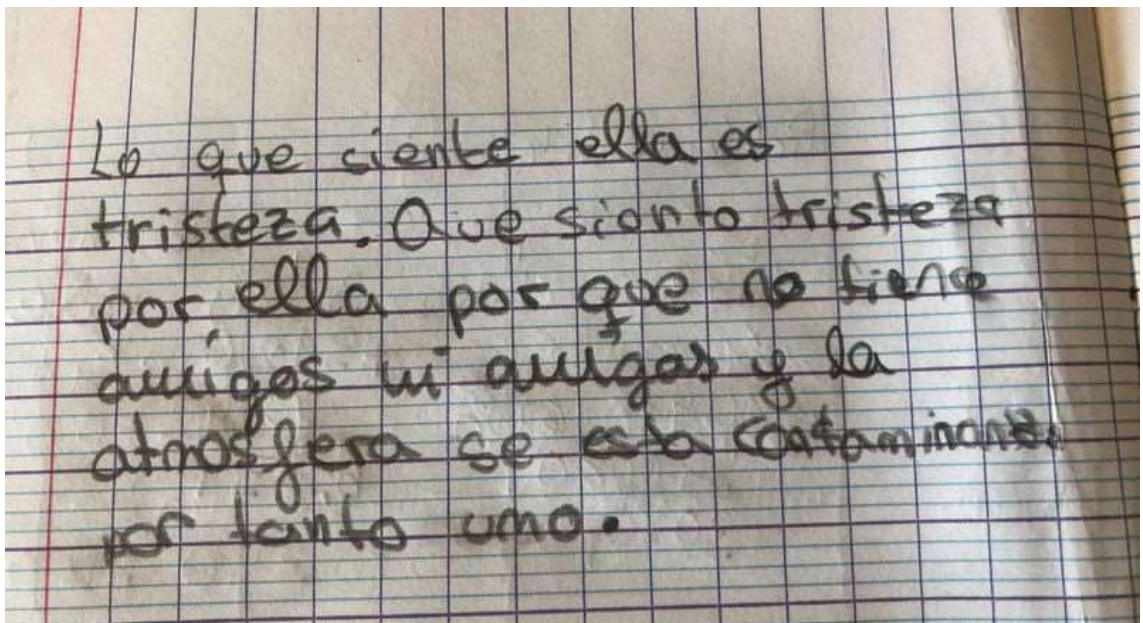 Lo que siente ella es
tristeza. Que sionto tristeza
por ella por que no tiene
amigos ni amigas y la
atmosfera se esta contaminando
por tanto umo.